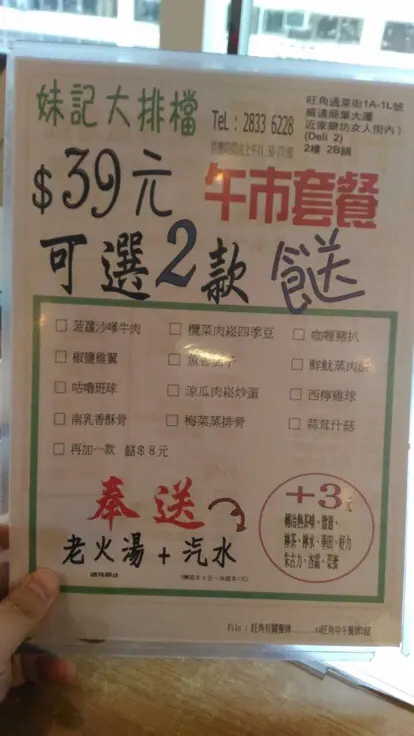 妹記大排檔
TeL : 2833 6228
旺角通菜街1A-1L號
威達商業大廈
近家樂坊女人街內)
(Deli 2)
2樓 2B舖
$39元
午市套餐
可選2款餸
□ 菠蘿沙嗲牛肉
□ 欖菜肉崧四季豆
□ 咖喱豬扒
□ 椒鹽雞翼
□ 鮮魷蒸肉
□ 咕嚕班球
□ 涼瓜肉崧炒蛋
□ 西檸雞球
□ 南乳香酥骨
□ 梅菜蒸排骨
□ 蒜茸什菇
□ 再加一款 餸$8元
奉送
老火湯+汽水
+3元
File : 旺角有關餐牌